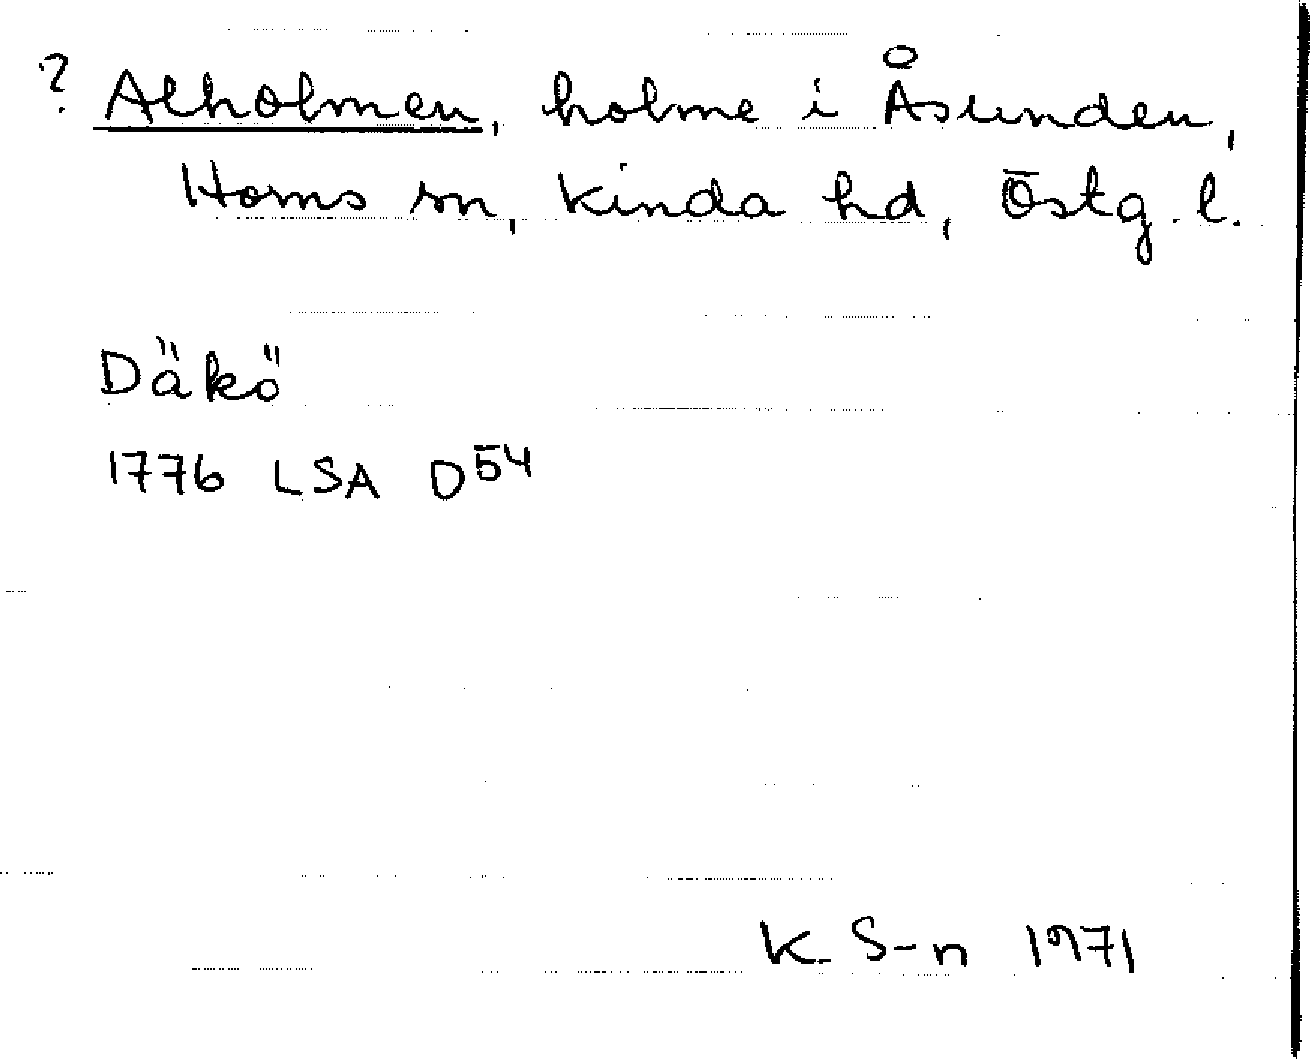 ? Alholmen, holme i Åsunden,
Horns sn, Kinda hd, Östg. l.
Däkö
1776 LSA D54
K. S-n 1971